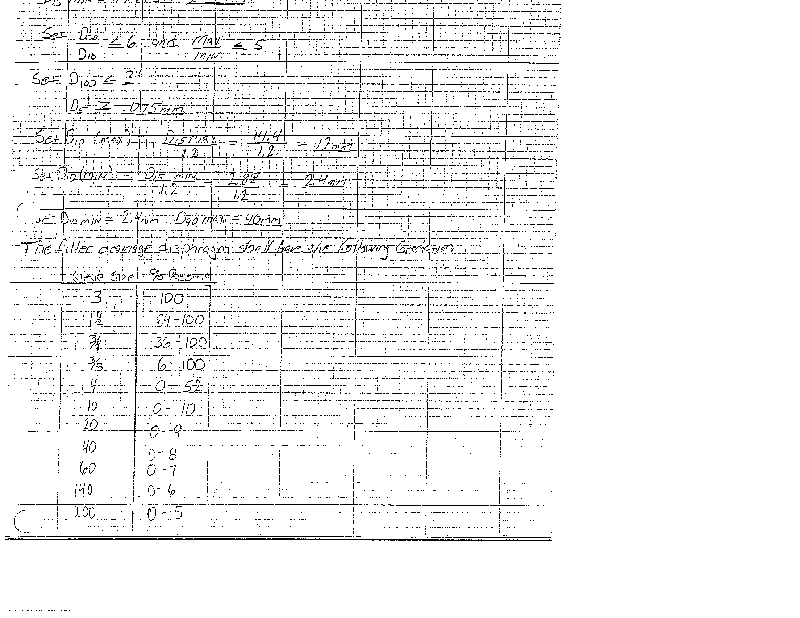 Set D60/D10 ≤ 6 and Max/min ≤ 5
Set D100 ≤ 3"
D5 ≥ .075mm
Set D10 (max) = D15max/1.2 = 14.4/1.2 = 12mm
Set D10 min = D15 min/1.2 = 2.88/1.2 = 2.4mm
D10 min = 2.4mm D90 max = 40mm
The filter drainage diaphragm shall have the following Gradation
Sieve Size
3 100
1½ -100
¾ 36-100
⅜ 6-100
4 0-52
10 0-10
20 0-9
40 0-8
60 0-7
140 0-6
200 0-5